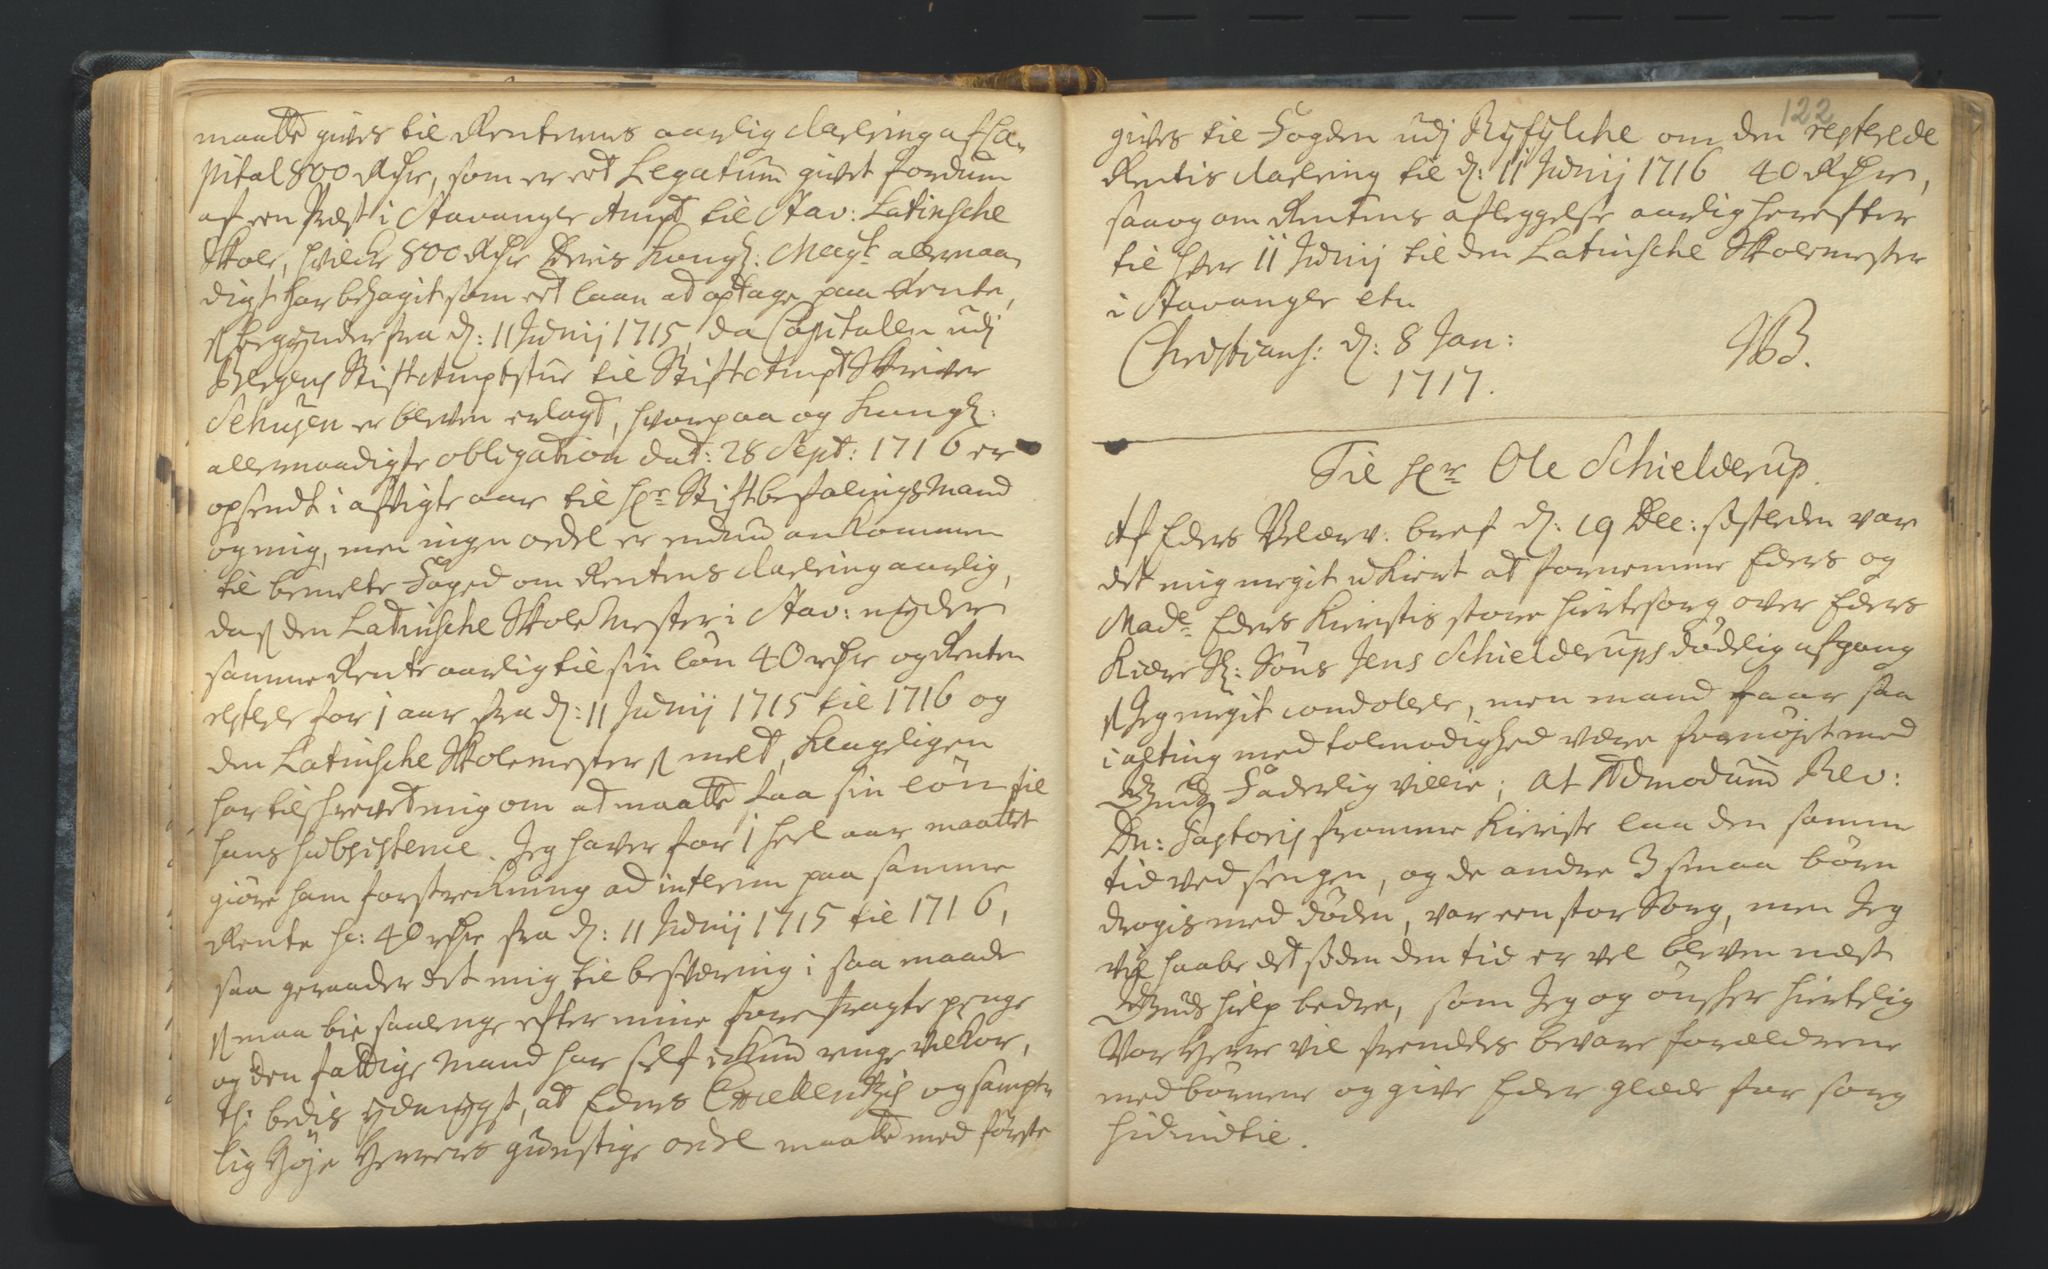 maatte gives til Renternes aarlig Clarering af Ca-
pital 800 Rdr, som er et Legatum givet fordum
af een Præst i Stavanger Ampt til Stav: Latinsche
Skole, hvilke 800 Rdr Deris Kongl: Mayt allernaa-
digst har behagit som et laan at optage paa Rente,
begynder fra d: 11 Junij 1715, da Capitalen udi
Bergens StiftAmptstue til StiftAmptSkriver
Schujen er bleven erlagt, hvorpaa og Kongl:
allernaadigste obligation dat: 28 Sept: 1716 er
opsendt i afvigte aar til Hr StiftbefalingsMand
og mig, men ingen ordre er endnu ankommen
til bemelte Foged om Rentens Clarering aarlig,
da den Latinsche SkoleMester i Stav: nyder
samme Rente aarlig til sin løn 40 Rdr og Renten
resterer for 1 aar fra d: 11 Junij 1715 til 1716 og
den Latinsche Skolemester melt, klageligen
har tilskrevet mig om at maatte faa sin løn til
hans subsistence. Jeg haver for 1 heel aar maattet
giöre ham forstrekning ad interim paa samme
Rente 40 Rdr fra d: 11 Junij 1715 til 1716,
saa geraader det mig til besværing i saa maade
maa bie saalenge efter mine forestragte penge
og den fattige Mand har self ickun ringe vilkor,
thi bedis ydmygst, at Eders Excellentzis og sampt-
lig Höje Herrers gunstige ordre maatte med förste
122
gives til Fogden udj Ryfylche om den resterede
Rentis Clarering til d: 11 Junij 1716 40 Rdr,
saa og om Rentens afleggelse aarlig herefter
til hver 11 Junij til den Latinsche Skolemester
i Stavanger etc
Christians: d: 8 Jan:
1717.
Til Hr Ole Schielderup.
Af Eders Velærv: bref d: 19 Dec: sistleden var
det mig megit ukiert at fornemme Eders og
Mad: Eders Kieristis store hiertesorg over Eders
kiere Sl: Söns Jens Schielderups dödelig afgang
Jeg megit condolere, men mand faar saa
i alting med tolmodighed være fornöjet med
Guds Faderlig villie; at Admodum Rev:
Dn: Pastoris fromme Kieriste laa den samme
tid ved sengen, og de andre 3 smaa börn
drogis med döden, var een stor Sorg, men Jeg
vil haabe det siden den tid er vel bleven næst
Guds hielp bedre, som Jeg og önsker hiertelig
Vor Herre vil fremdeles bevare forældrene
med börnene og give Eder glæde for sorg
hidindtil.